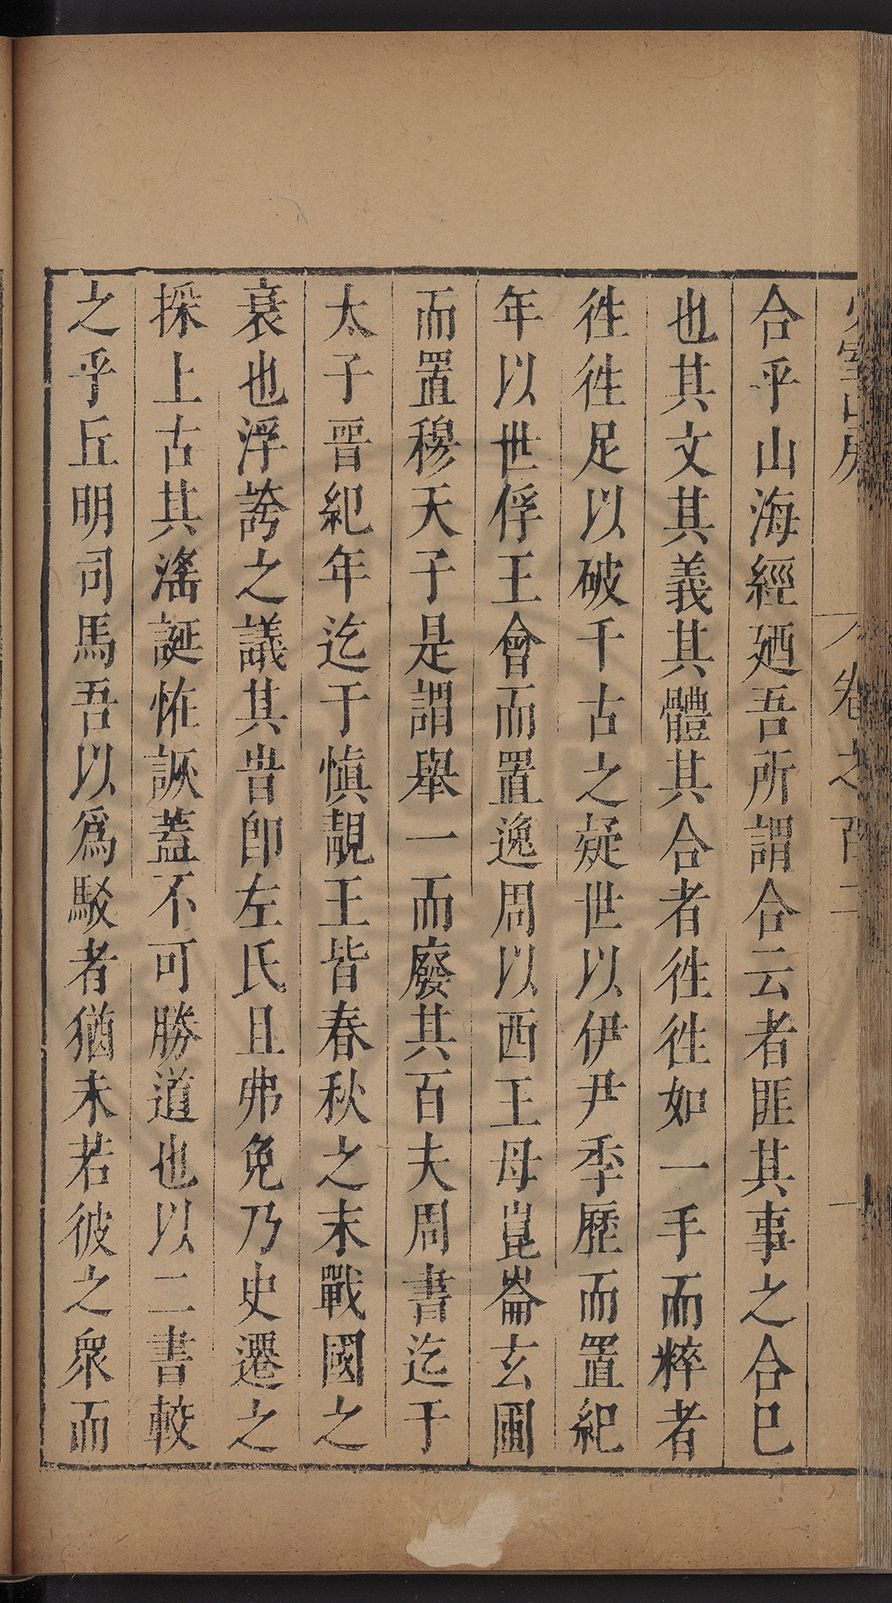 合乎山海經廼吾所謂合云者匪其事之合巳
也其文其義其體其合者徃徃如一手而粹者
徃徃足以破千古之疑世以伊尹季歷而置紀
年以世俘王會而置逸周以西王母崑崙玄圃
而置穆天子是謂舉一而廢其百夫周書迄于
太子晉紀年迄于慎靚王皆春秋之末戰國之
衰也浮誇之議其昔卽左氏且弗免乃史遷之
採上古其滛誕恠詼蓋不可勝道也以二書較
之乎丘明司馬吾以爲駁者猶未若彼之衆而